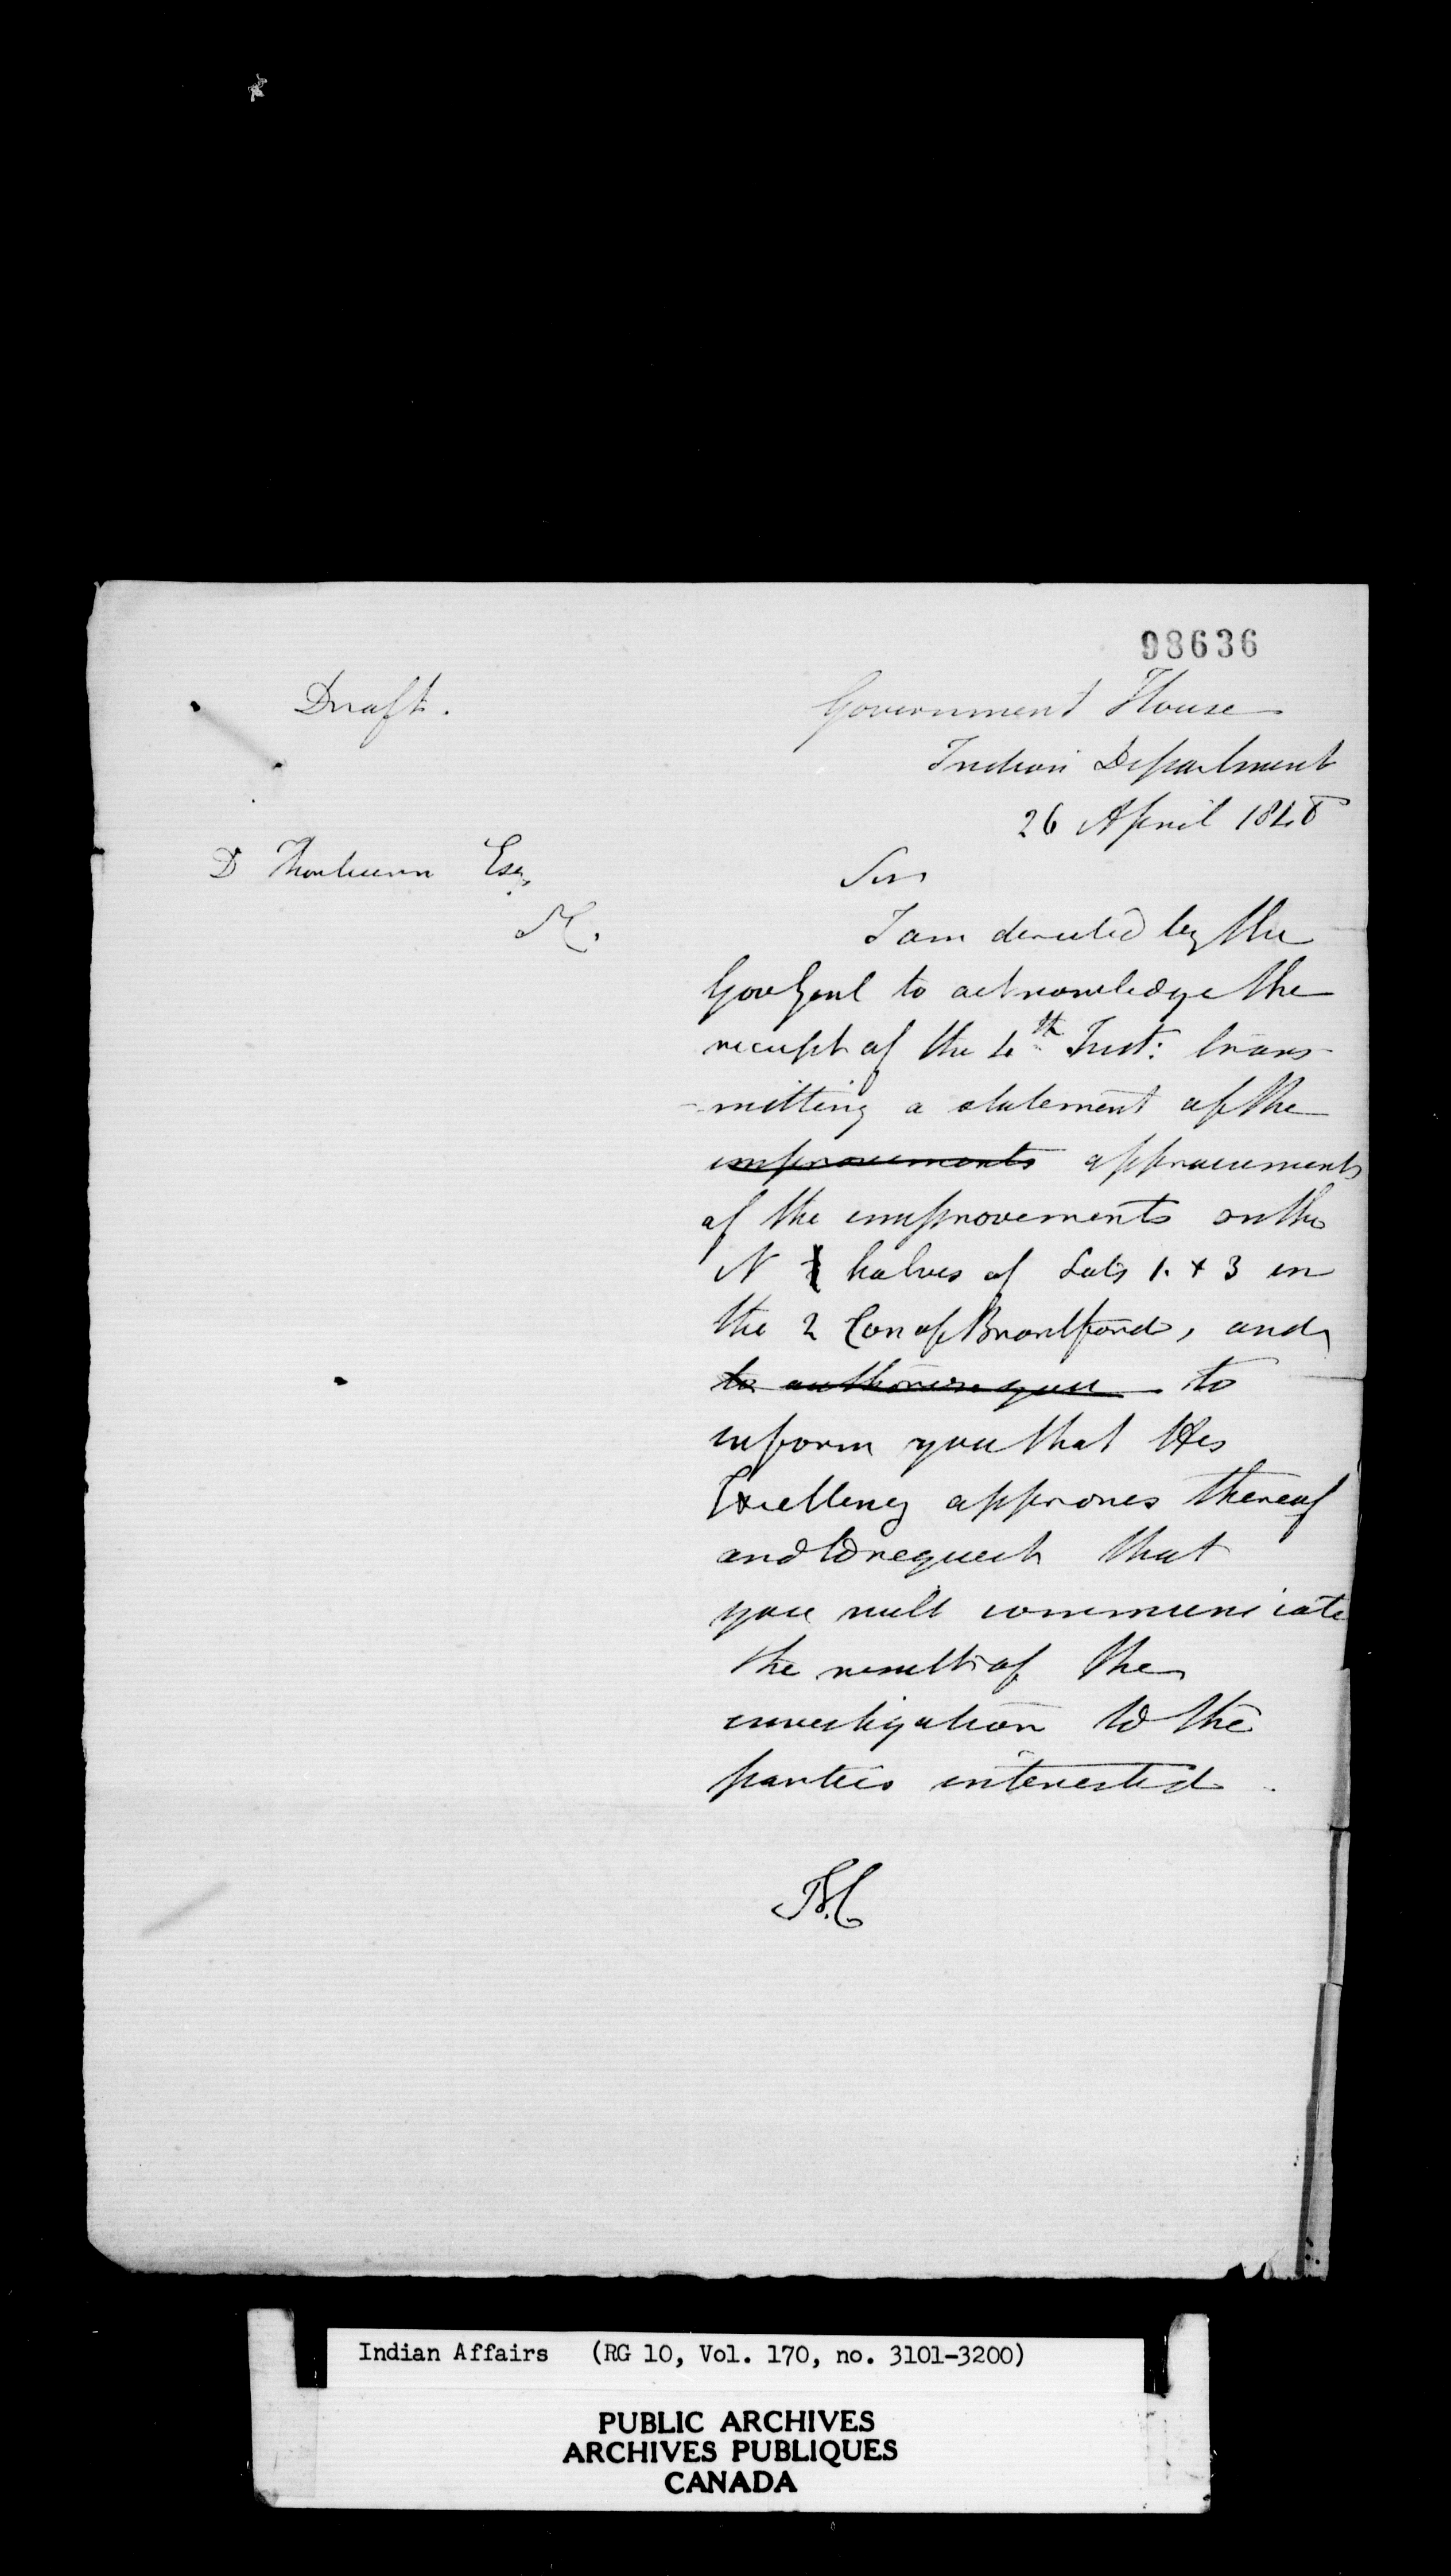 98636
Draft.
Government House
Indian Department
26 April 1848
D Thorburn Esq
Sir
I am directed by the
Gov Genl to acknowledge the
receipt of the 4th Inst: trans
-mitting a statement of the
improvements appraisements
of the improvements on the
N halves of Lots 1. & 3 in
the 2 Con of Brantford, and
to authorise you to
inform you that His
Excellency approves thereof
and to request that
you will communicate
the result of the
investigation to the
parties interested.
Indian Affairs (RG 10, Vol. 170, no. 3101-3200)
PUBLIC ARCHIVES
ARCHIVES PUBLIQUES
CANADA